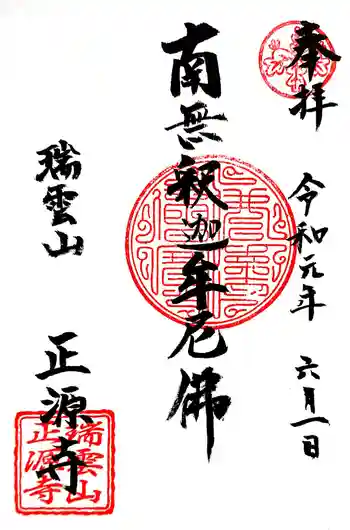 奉拝
令和元年 六月一日
南無釈迦牟尼佛
瑞雲山
正源寺
瑞雲山
正源寺